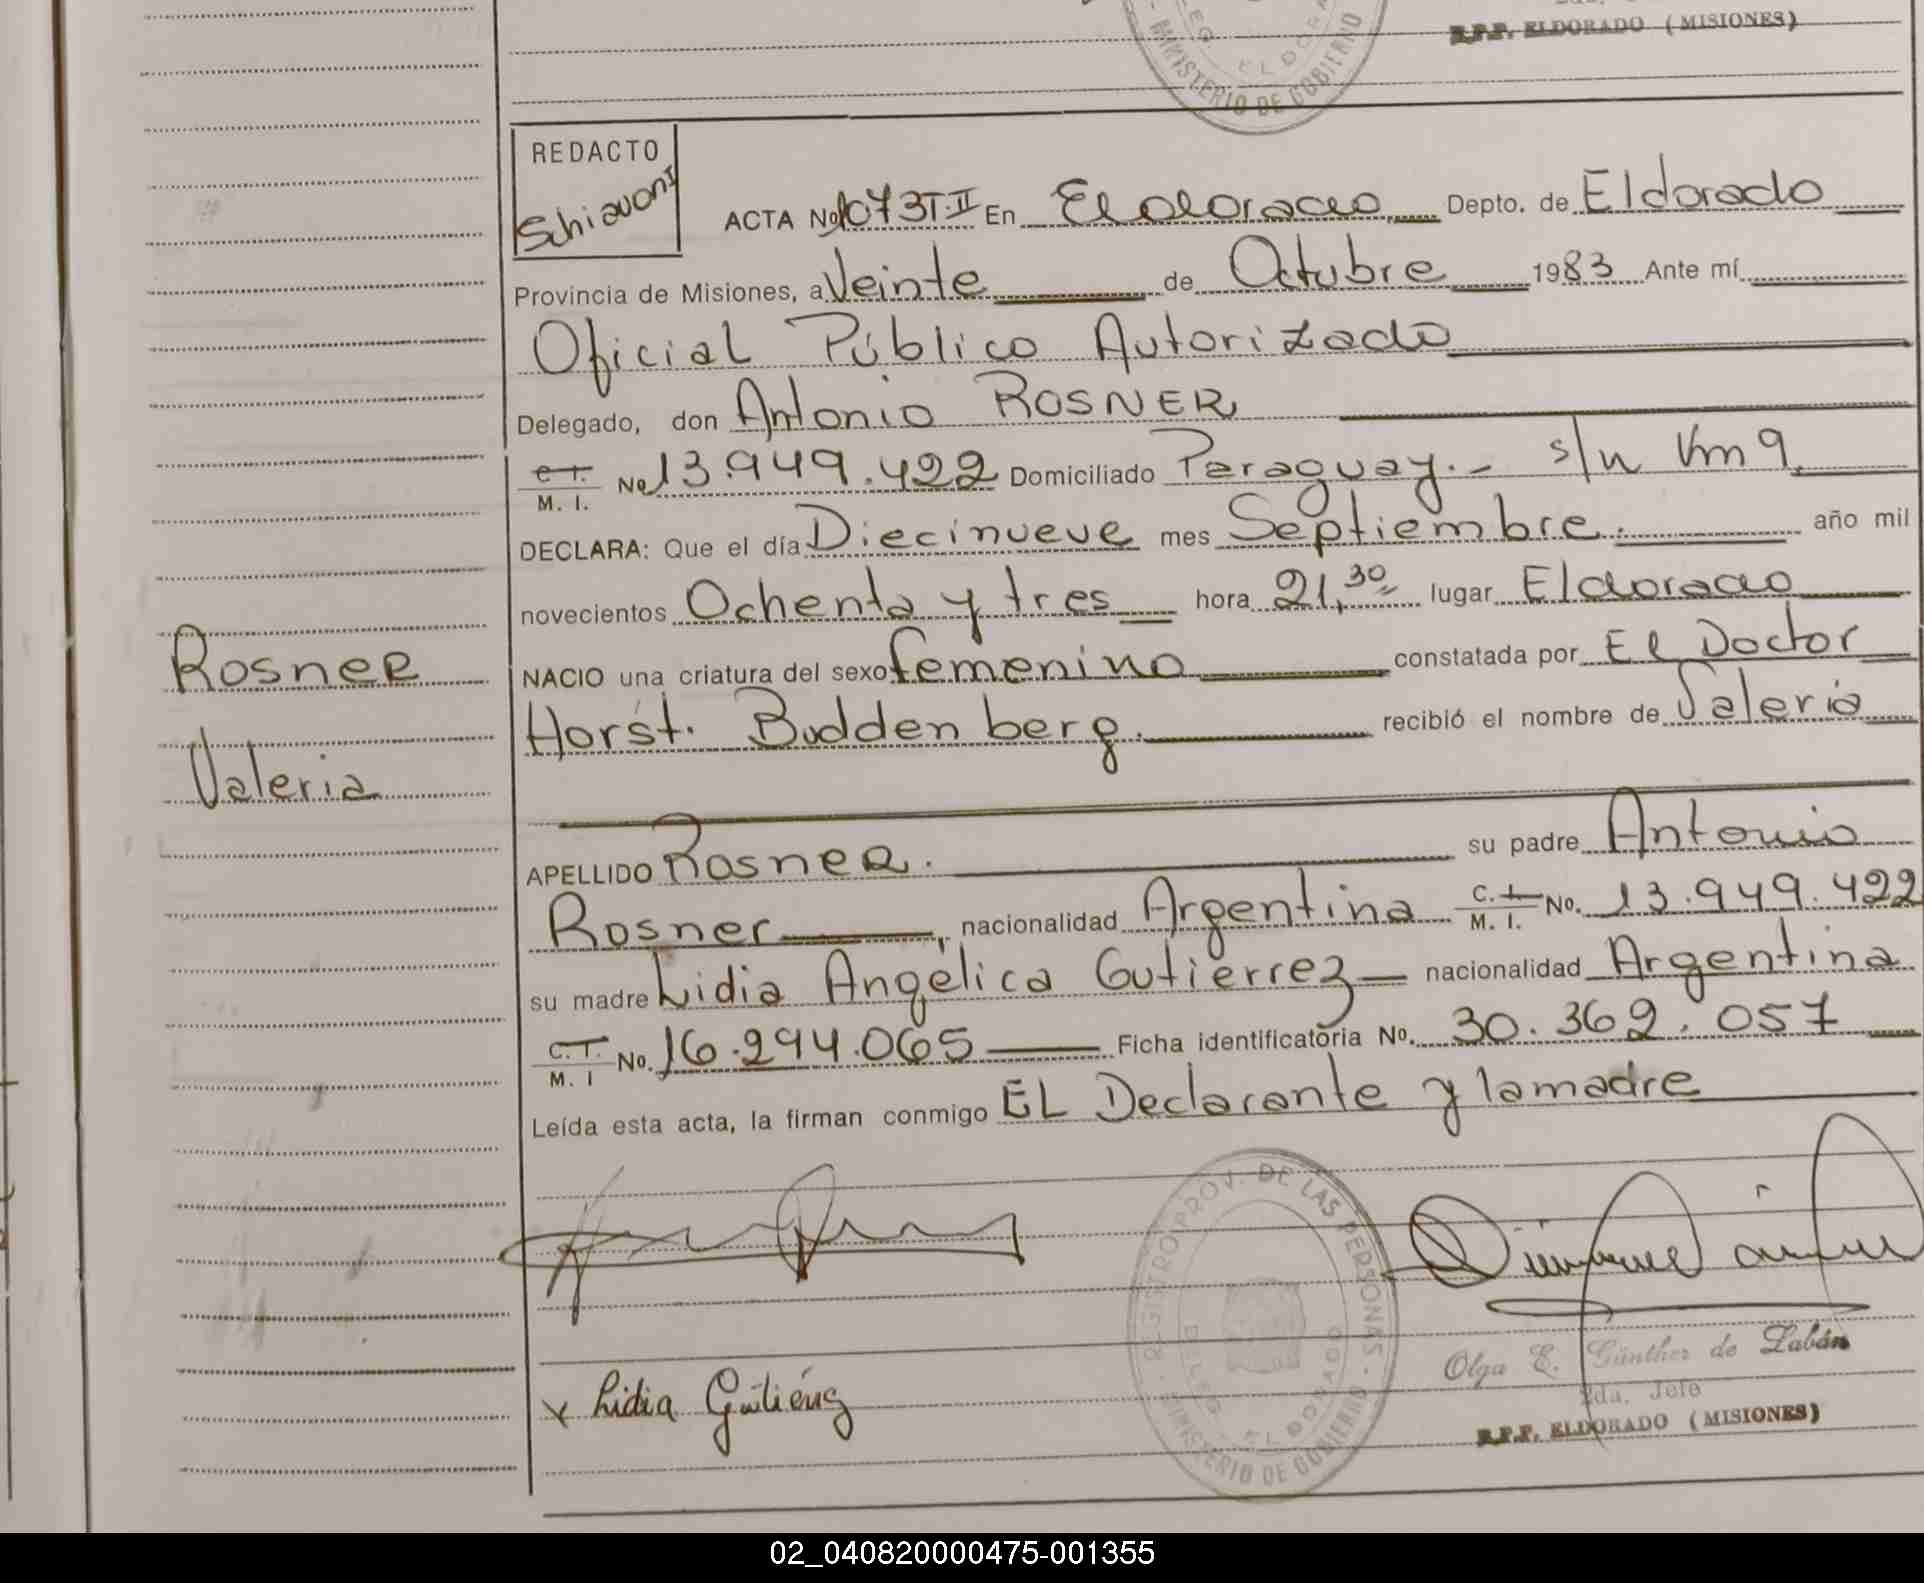 R.P.P. ELDORADO (MISIONES)
MINISTERIO DE GOBIERNO
REDACTO
Schiavoni
ACTA No 1073 T·II En Eldorado Depto. de Eldorado
Provincia de Misiones, a Veinte de Octubre 1983 Ante mí
Oficial Público Autorizado
Delegado, don Antonio ROSNER
C.I. M. I. No 13.949.422 Domiciliado Paraguay.- s/n Km 9
DECLARA: Que el día Diecinueve mes Septiembre. año mil
novecientos Ochenta y tres hora 21,30 lugar Eldorado
NACIO una criatura del sexo femenino constatada por El Doctor
Horst. Buddenberg. recibió el nombre de Valeria
Rosner
Valeria
APELLIDO Rosner. su padre Antonio
Rosner, nacionalidad Argentina C.I. M. I. No. 13.949.422
su madre Lidia Angélica Gutierrez nacionalidad Argentina
C.I. M. I No. 16.294.065 Ficha identificatoria No. 30.362.057
Leída esta acta, la firman conmigo EL Declarante y la madre
REGISTRO PROV. DE LAS PERSONAS
DELEG. ELDORADO
MINISTERIO DE GOBIERNO
x Lidia Gutiérrez
Olga E. Günther de Zabán
2da. Jefe
R.P.P. ELDORADO (MISIONES)
02_040820000475-001355